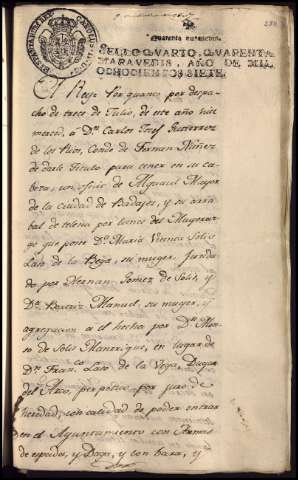 Quarenta maravedis.
SELLO QVARTO, QVARENTA
MARAVEDIS, AÑO DE MIL
OCHOCIENTOS SIETE.
El Rey. Por quanto por despa-
cho de trece de Julio, de este año hize
merced, a Dn. Carlos Josef Gutierrez
de los Rios, Conde de Fernan Nuñez
de darle Titulo para tener en su ca-
beza, un oficio de Alguacil Mayor
de la ciudad de Badajoz, y su arra-
bal de telena por bienes del Mayoraz-
go que posee Da. Maria Vicenta Solis
Laso de la Vega, su muger, funda-
do por Hernan Gomez de Solis, y
Da. Beatriz Manuel, su muger, y
agregacion a el hecha por Dn. Alon-
so de Solis Manrrique, en lugar de
Dn. Franco. Laso de la Vega, Duque
del Arco, perpetuo por juro de
heredad, con calidad de poder entrar
en el Ayuntamiento con Armas
de espada, y Daga, y con bara, y